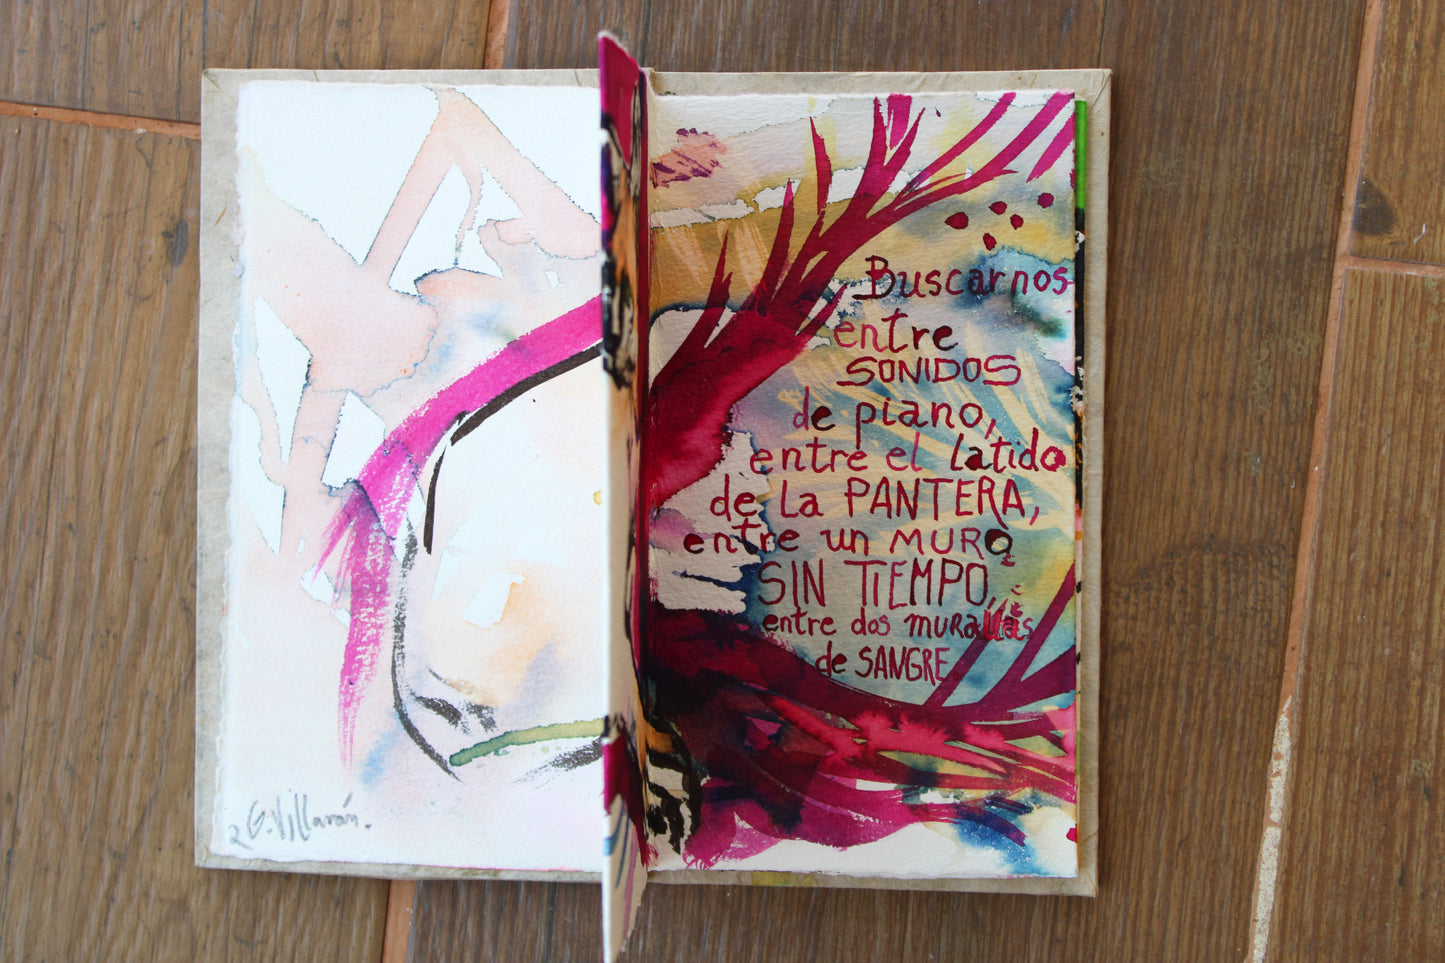 G. Villarán.
Buscarnos
entre
SONIDOS
de piano,
entre el latido
de la PANTERA,
entre un MURO
SIN TIEMPO,
entre dos MURallas
de SANGRE